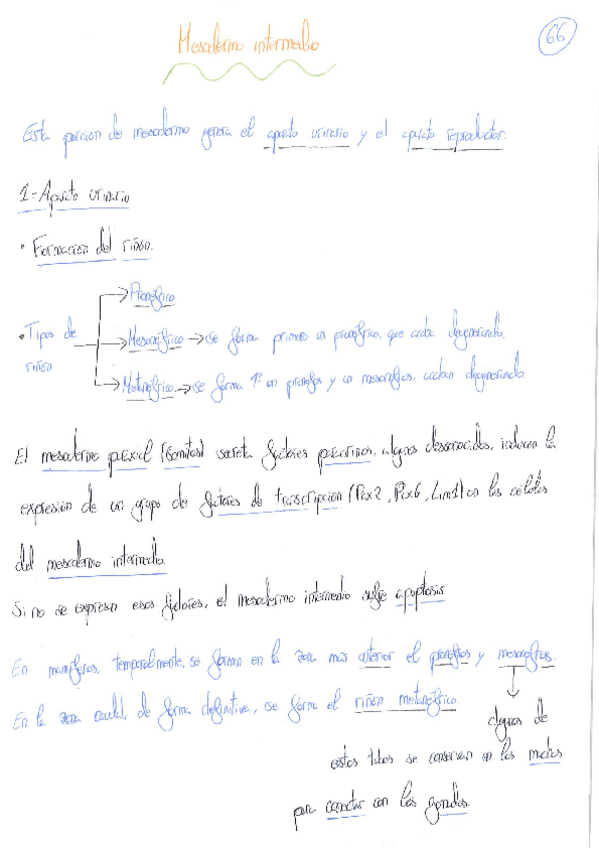 Mesodermo intermedio
66
Esta porción de mesodermo genera el aparato urinario y el aparato reproductor.
1- Aparato urinario
• Formación del riñón.
Pronéfrico
• Tipos de riñón
Mesonéfrico → se forma primero un pronéfrico, que acaba degenerando.
Metanéfrico → se forma 1º un pronefros y un mesonefros, acaban degenerando.
El mesodermo paraxial (somitas) secreta factores paracrinos, algunos desconocidos, inducen la
expresión de un grupo de factores de transcripción (Pax2, Pax6, Lim1) en las células
del mesodermo intermedio.
Si no se expresan esos factores, el mesodermo intermedio sufre apoptosis.
En mamíferos, temporalmente, se forman en la zona más anterior el pronefros y mesonefros.
En la zona caudal, de forma definitiva, se forma el riñón metanéfrico.
algunos de
estos tubos se conservan en los machos
para conectar con las gónadas